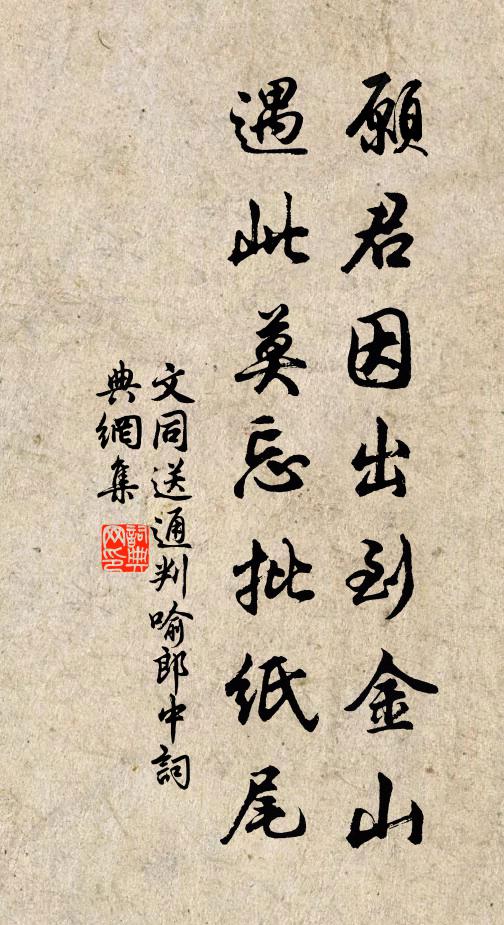 願君因出到金山
遇此莫忘批紙尾
文同送通判喻郎中詞
典網集
詞典網印